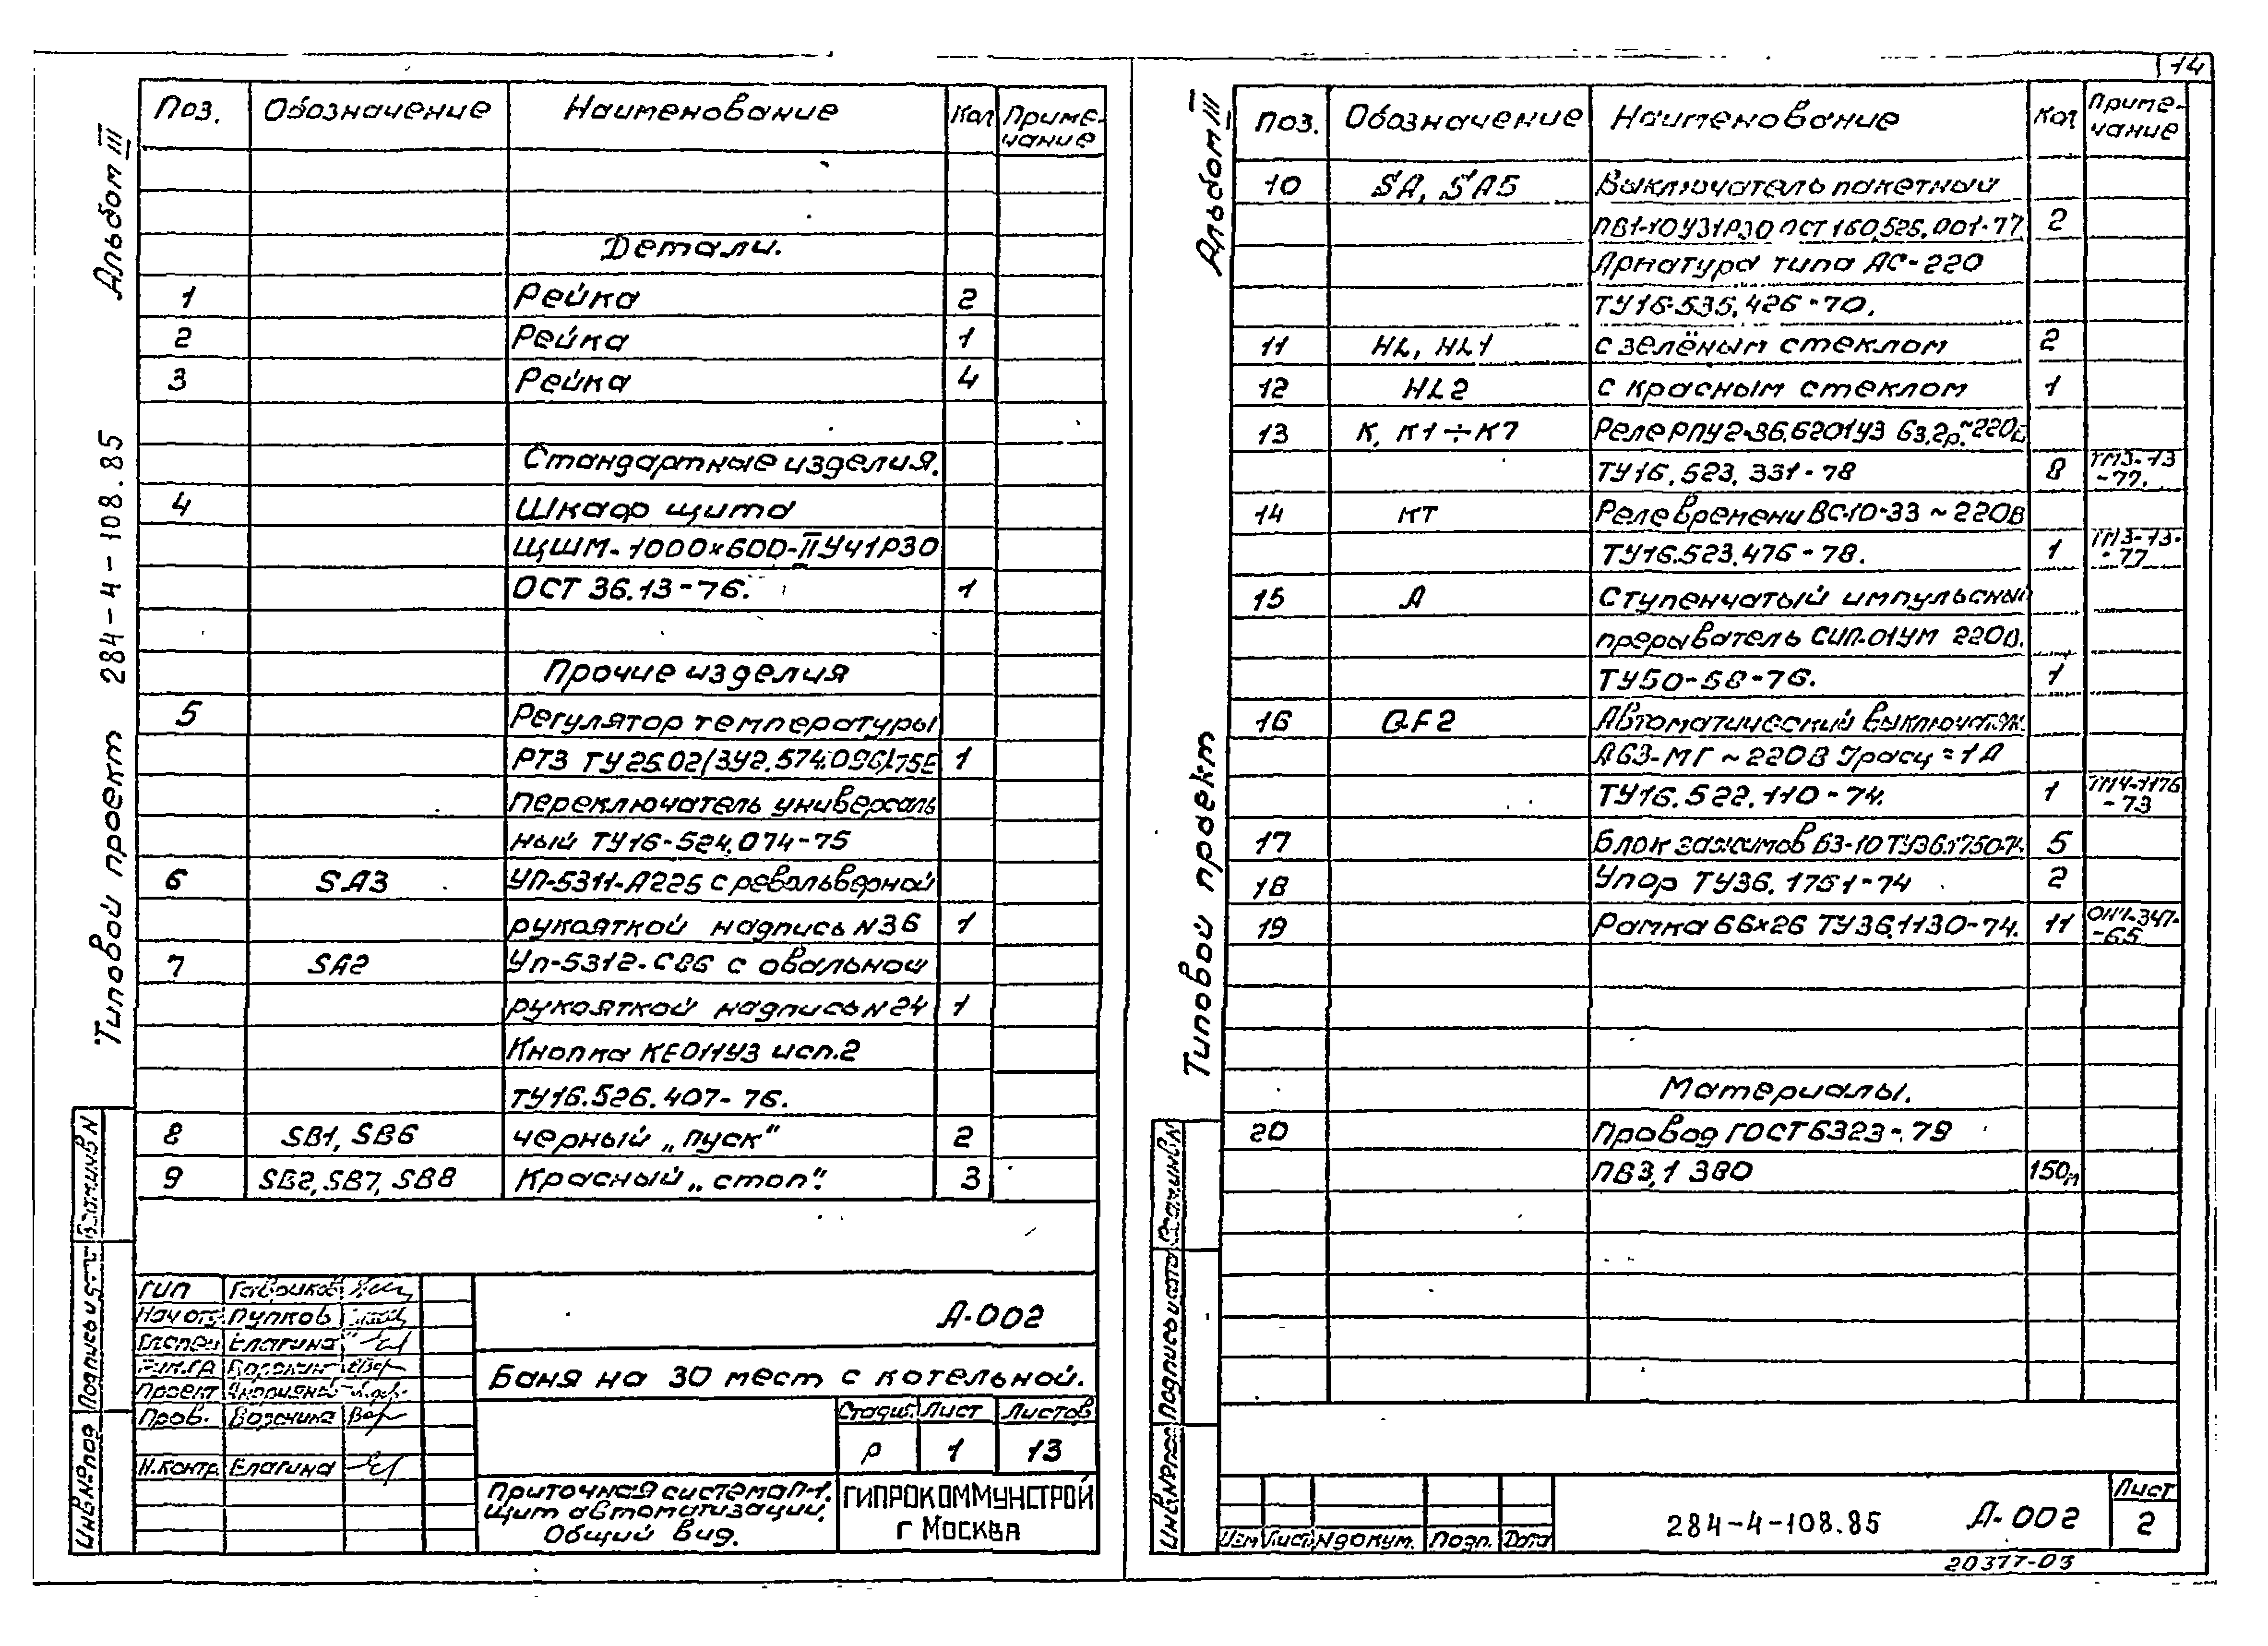 14
Альбом III
Типовой проект 284-4-108.85
Поз. Обозначение Наименование Кол Приме-
чание
Детали.
1 Рейка 2
2 Рейка 1
3 Рейка 4
Стандартные изделия.
4 Шкаф щита
ЩШМ-1000×600-IIУ41Р30
ОСТ 36.13-76. 1
Прочие изделия
5 Регулятор температуры
РТ3 ТУ25.02/3У2.574.096/-75Е 1
Переключатель универсаль
ный ТУ16-524.074-75
6 SA3 УП-5311-А225 с револьверной
рукояткой надпись N36 1
7 SA2 УП-5312-С86 с овальной
рукояткой надпись N24 1
Кнопка КЕ011У3 исп.2
ТУ16.526.407-76.
8 SB1, SB6 черный „пуск" 2
9 SB2, SB7, SB8 Красный „стоп". 3
Взам.инв N
Подпись и
Инв№под
ГИП Гавриков
Нач отд Пупков
Гл спец Елагина
Рук.гр
Проект
Пров.
Н.контр. Елагина
А-002
Баня на 30 мест с котельной.
Стадия Лист Листов
Р 1 13
Приточная система П-1.
Щит автоматизации.
Общий вид.
ГИПРОКОММУНСТРОЙ
г Москва
Альбом III
Типовой проект
Поз. Обозначение Наименование Кол Приме-
чание
10 SA, SA5 Выключатель пакетный
ПВ1-10У31Р30 ОСТ 160.526.001-77 2
Арматура типа АС-220
ТУ16-535.426-70.
11 HL, HL1 с зелёным стеклом 2
12 HL2 с красным стеклом 1
13 K, K1÷K7 Реле РПУ2-36.6201У3 6з,2р,~220В
ТУ16.523.331-78 8 ТМ3-13
-77.
14 KT Реле времени ВС-10-33 ~220В
ТУ16.523.476-78. 1 ТМ3-13-
-77
15 A Ступенчатый импульсный
прерыватель СИП-01УМ 220В.
ТУ50-58-76. 1
16 QF2 Автоматический выключатель
А63-МГ ~220В Iрасц=1А
ТУ16.522.110-74. 1 ТМ4-1176
-73
17 Блок зажимов БЗ-10 ТУ36.1750-74 5
18 Упор ТУ36.1751-74 2
19 Рамка 66×26 ТУ36.1130-74. 11 -347-
-65
Материалы.
20 Провод ГОСТ 6323-79
ПВ3,1 380 150м
Взам.инв N
Подпись и дата
Изм Лист N докум. Подп. Дата
284-4-108.85 А-002
Лист
2
20377-03